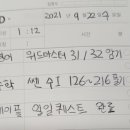 2021 년 9 월 22 일
1:12
워드마스터 31/32 암기
쎈 수I 126~216 풀기
일일퀘스트 완료